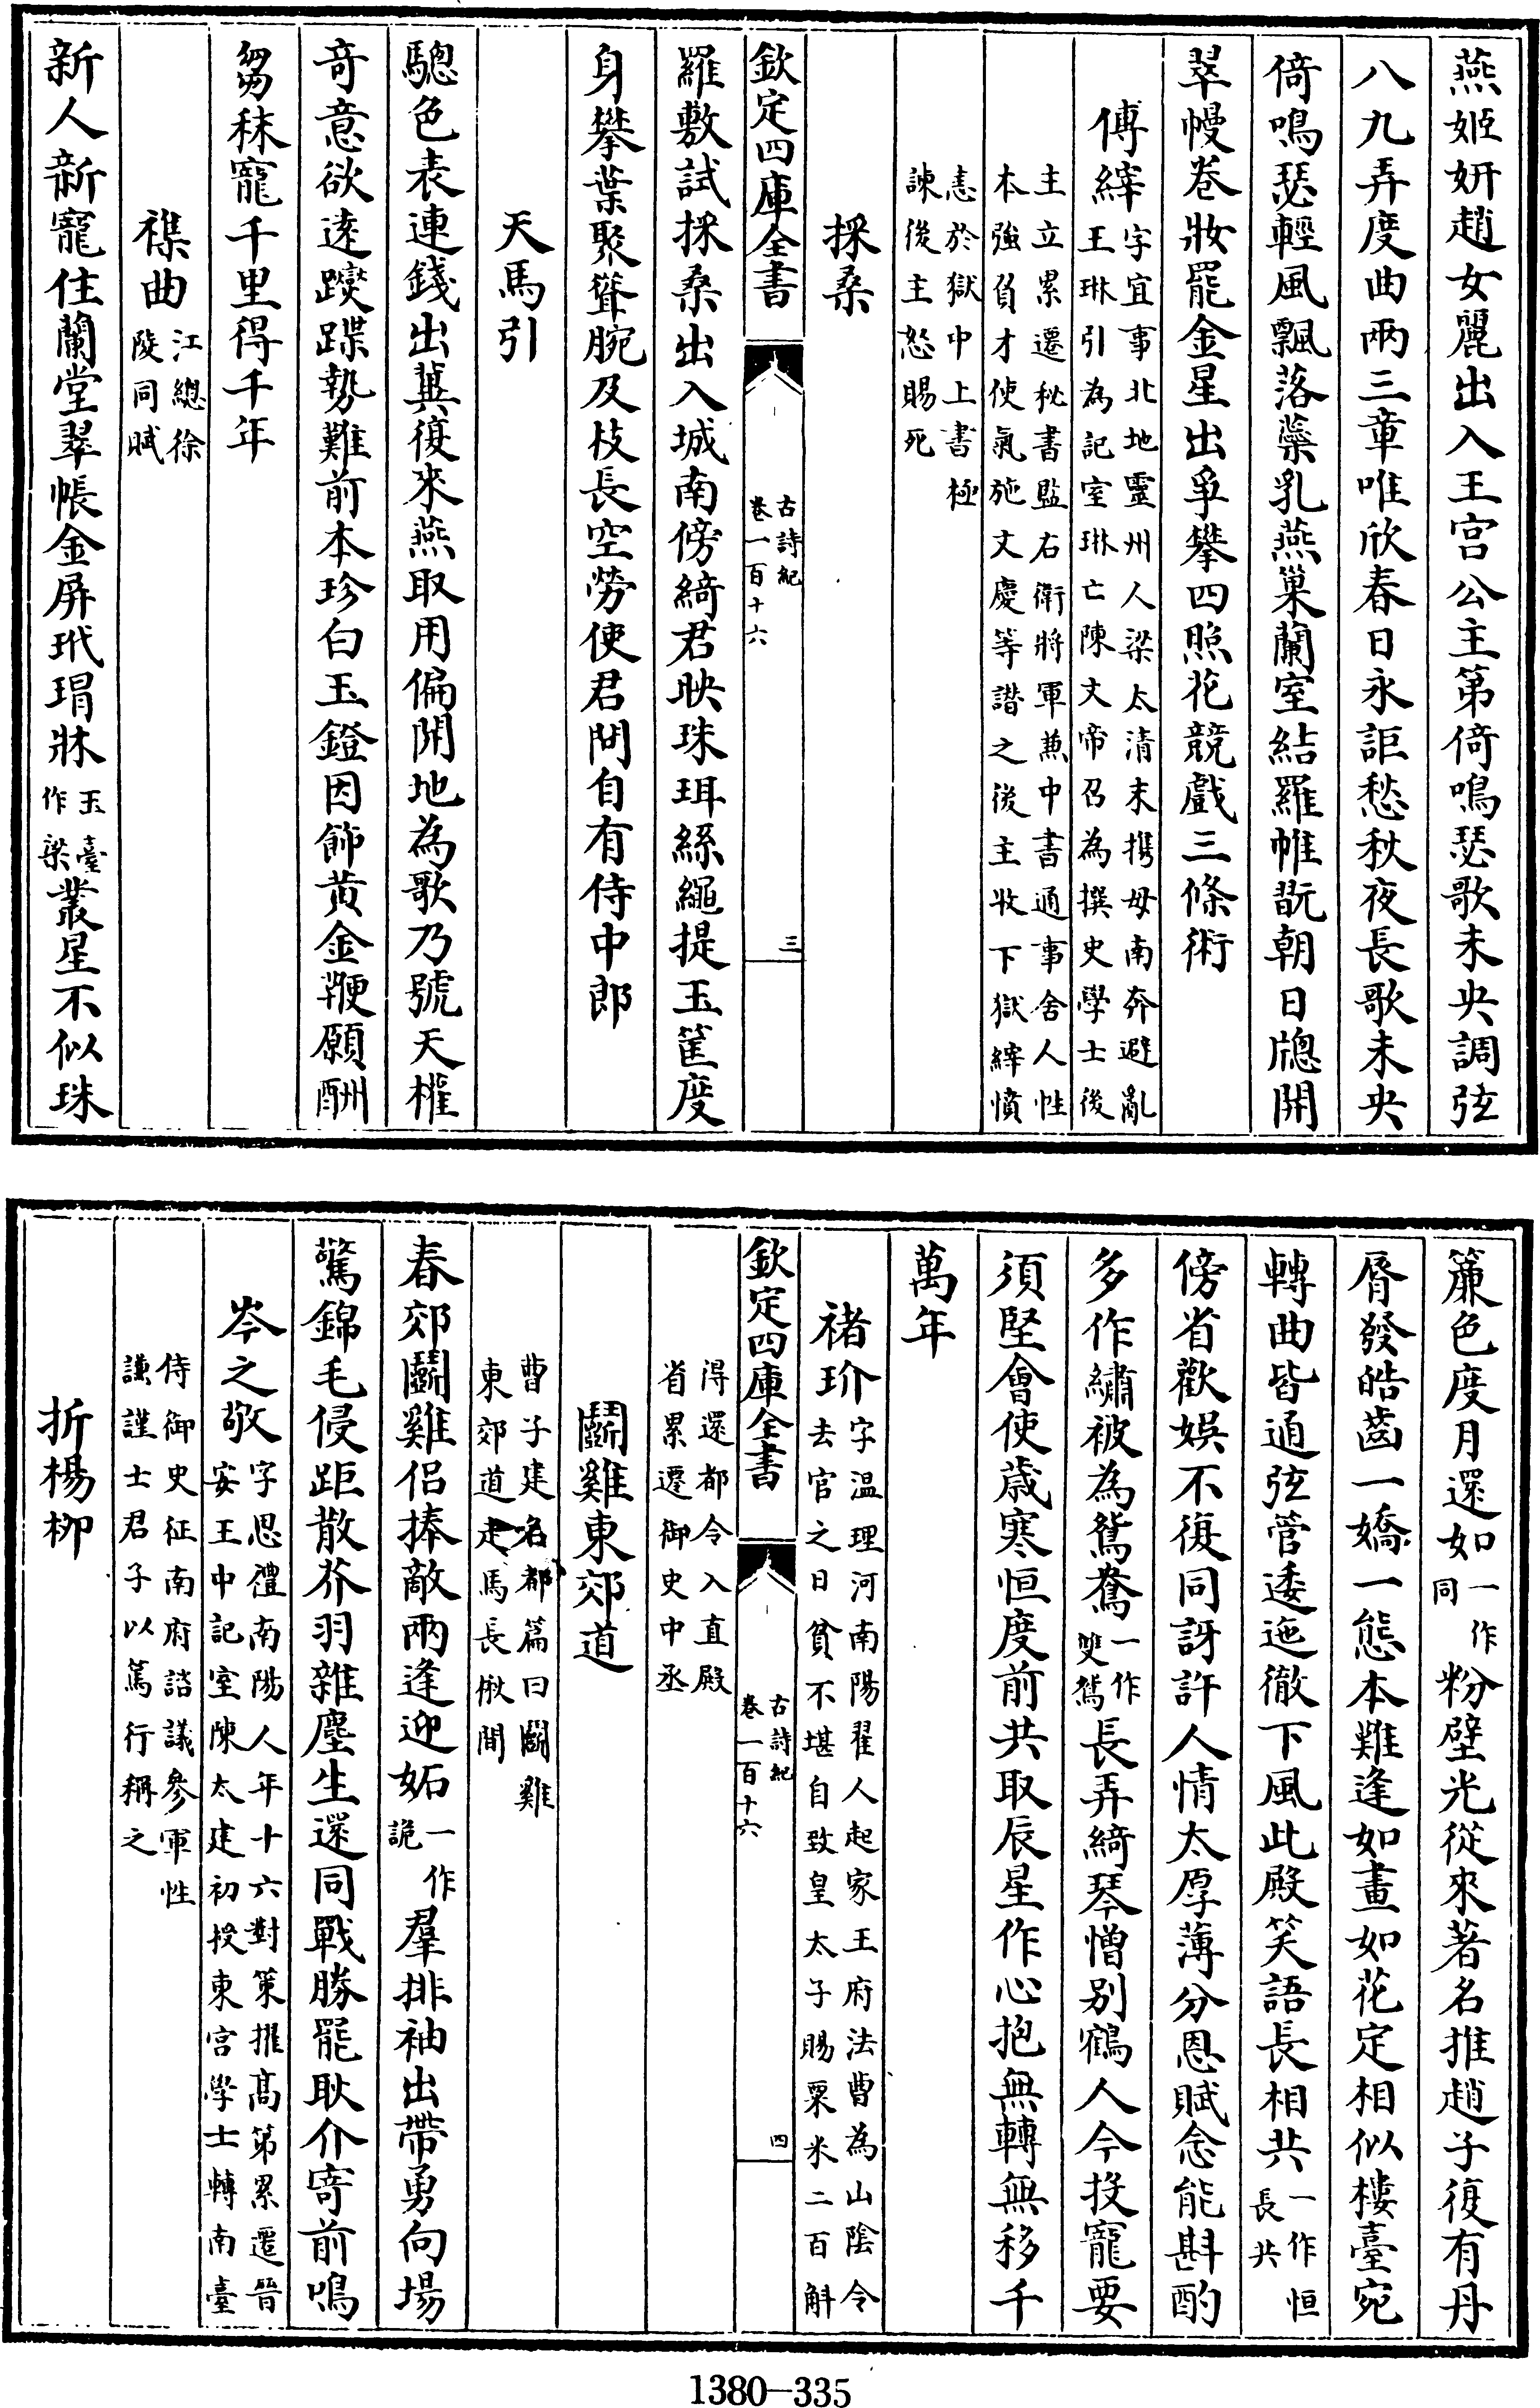 燕姬妍趙女麗出入王宫公主第倚鳴瑟歌未央調弦
八九弄度曲兩三章唯欣春日永詎愁秋夜長歌未央
倚鳴瑟輕風飄落蘂乳燕巢蘭室結羅帷翫朝日牕開
翠幔卷妝罷金星出爭攀四照花競戲三條術
傅縡字宜事北地靈州人梁太清末携母南奔避亂
王琳引為記室琳亡陳文帝召為撰史學士後
主立累遷秘書監右衛將軍兼中書通事舍人性
本強負才使氣施文慶等譖之後主收下獄縡憤
恚於獄中上書極
諫後主怒賜死
採桑
欽定四庫全書
古詩紀
卷一百十六
三
羅敷試採桑出入城南傍綺君映珠珥絲繩提玉筐度
身攀葉聚聳腕及枝長空勞使君問自有侍中郎
天馬引
驄色表連錢出冀復來燕取用偏開地為歌乃號天權
奇意欲遠躞蹀勢難前本珍白玉鐙因飾黄金鞭願酬
芻秣寵千里得千年
襍曲江總徐
陵同賦
新人新寵住蘭堂翠帳金屏玳瑁牀玉臺
作梁叢星不似珠
簾色度月還如一作
同粉壁光從來著名推趙子復有丹
脣發皓齒一嬌一態本難逢如畫如花定相似樓臺宛
轉曲皆通弦管逶迤徹下風此殿笑語長相共一作恒
長共
傍省歡娱不復同訝許人情太厚薄分恩賦念能斟酌
多作繡被為鴛鴦一作
雙鴛長弄綺琴憎别鶴人今投寵要
須堅會使歲寒恒度前共取辰星作心抱無轉無移千
萬年
褚玠字温理河南陽翟人起家王府法曹為山陰令
去官之日貧不堪自致皇太子賜粟米二百斛
欽定四庫全書
古詩紀
卷一百十六
四
得還都令入直殿
省累遷御史中丞
鬭雞東郊道
曹子建名都篇曰鬭雞
東郊道走馬長楸間
春郊鬭雞侣捧敵兩逢迎妬一作
詭羣排袖出帶勇向場
驚錦毛侵距散芥羽雜塵生還同戰勝罷耿介寄前鳴
岑之敬字思禮南陽人年十六對策擢髙第累遷晉
安王中記室陳太建初授東宫學士轉南臺
侍御史征南府諮議參軍性
謙謹士君子以篤行稱之
折楊栁
1380—335